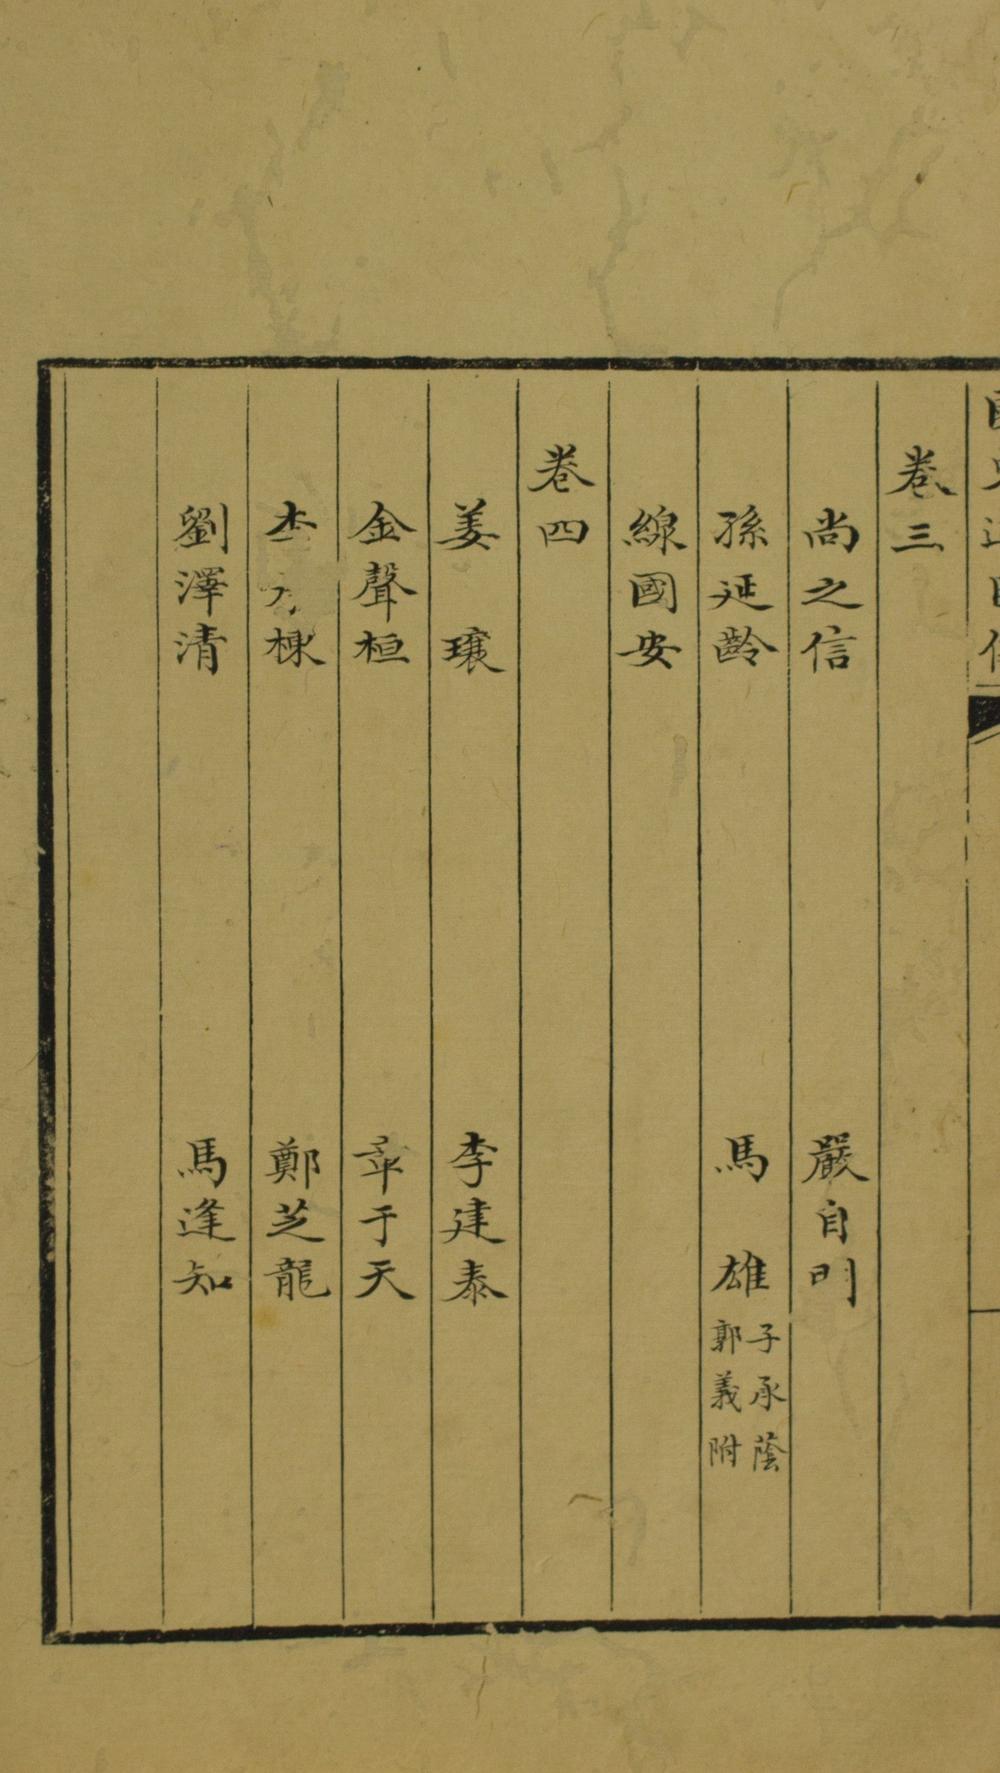 卷三
尚之信 嚴自明
孫延齡 馬 雄 子承蔭 郭義附
線國安
卷四
姜 瓖 李建泰
金聲桓 章于天
李 棟 鄭芝龍
劉澤清 馬逢知